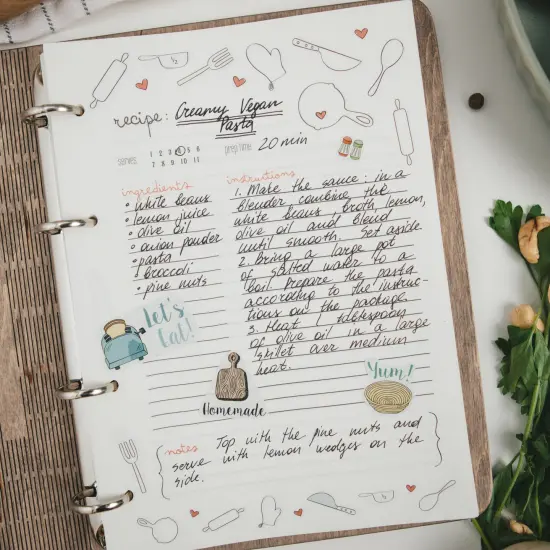 recipe: Creamy Vegan
Pasta
serves: 1 2 3 4 5 6
7 8 9 10 11
prep time: 20 min
ingredients
• white beans
• lemon juice
• olive oil
• onion powder
• pasta
• broccoli
• pine nuts
instructions
1. Make the sauce: in a
blender combine the
white beans, broth, lemon,
olive oil and blend
until smooth. Set aside
2. Bring a large pot
of salted water to a
boil. Prepare the pasta
according to the instruc-
tions on the package.
3. Heat 1 tablespoon
of olive oil in a large
skillet over medium
heat.
Let's
Eat!
Homemade
Yum!
notes Top with the pine nuts and
serve with lemon wedges on the
side.
1/2